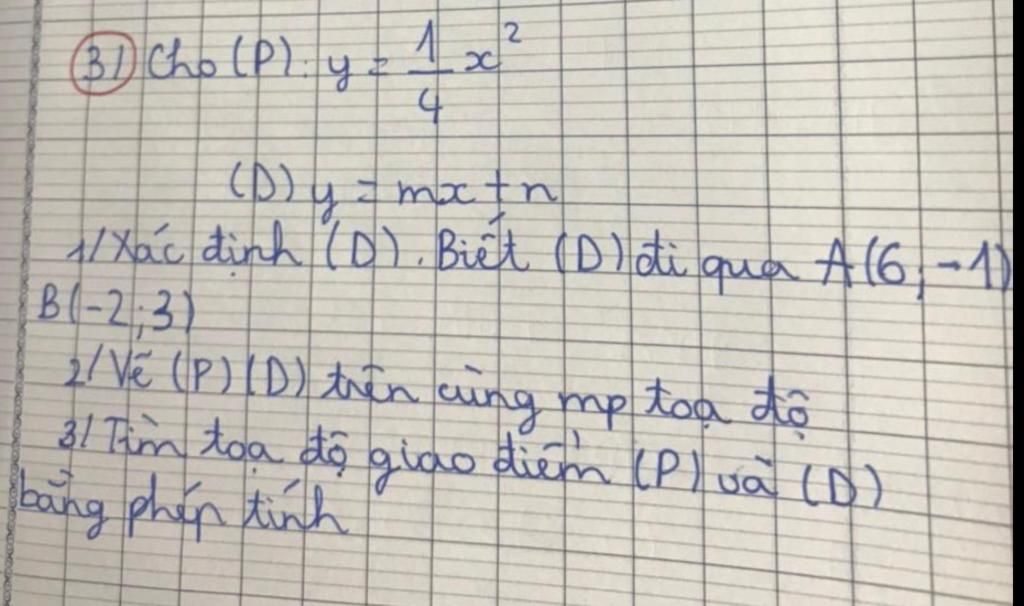 3) Cho (P): y = 1/4 x²
(D) y = mx + n
1/ Xác định (D). Biết (D) đi qua A(6; -1)
B(-2; 3)
2/ Vẽ (P) (D) trên cùng mp toạ độ
3/ Tìm toạ độ giao điểm (P) và (D)
bằng phép tính